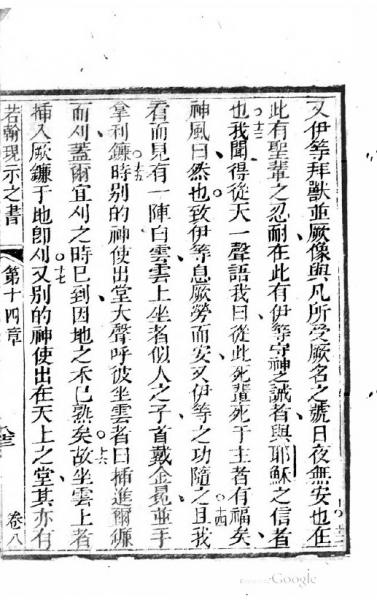 又伊等拜獸並厥像與凡所受厥名之號日夜無安也在
十二
此有聖輩之忍耐在此有伊等守神之誡者與耶穌之信者
十三
也我聞得從天一聲語我曰從此死輩死于主者有福矣
神風曰然也致伊等息厥勞而安又伊等之功隨之且我
十四
看而見有一陣白雲雲上坐者似人之子首戴金冕並手
十五
拿利鐮時別的神使出堂大聲呼彼坐雲者曰插進爾鐮
而刈蓋爾宜刈之時已到因地之禾已熟矣故坐雲上者
十六
插入厥鐮于地卽刈又別的神使出在天上之堂其亦有
十七
若翰現示之書
第十四章
卷八
Google